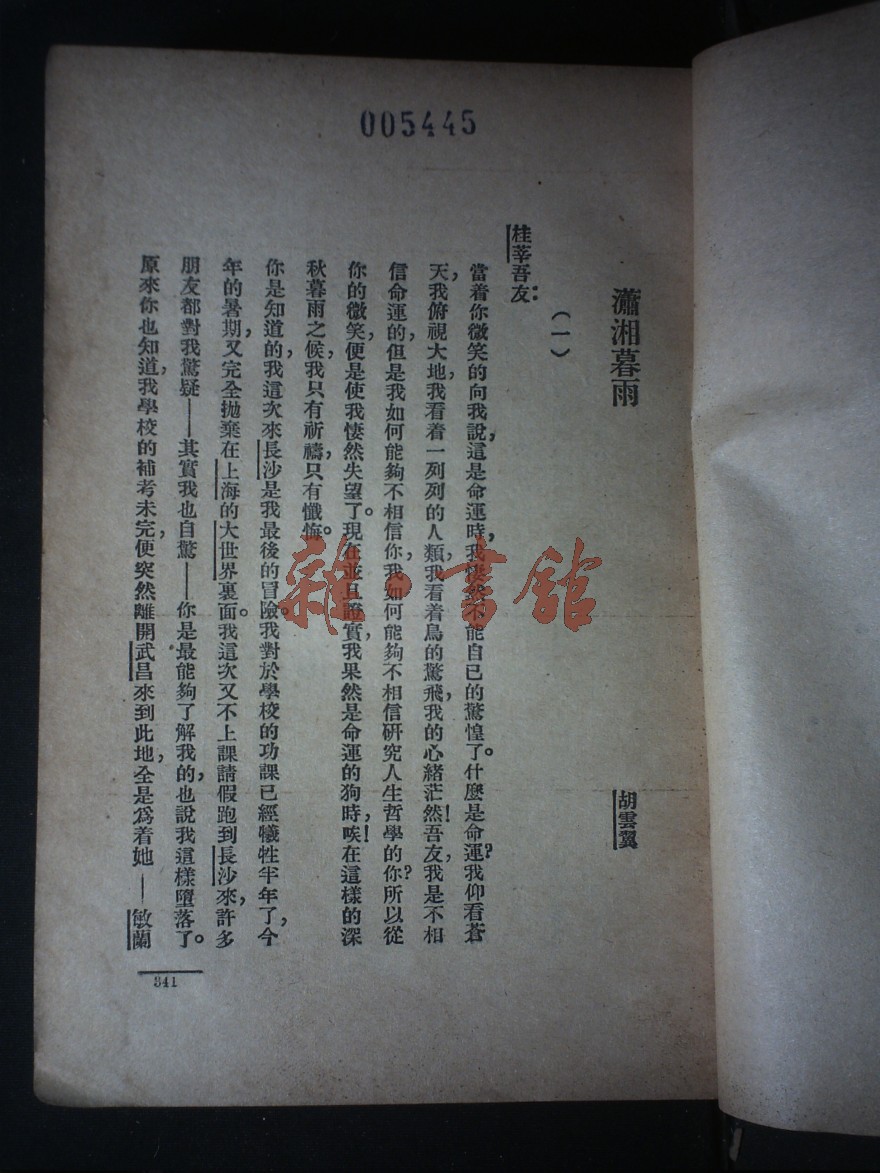 005445
瀟湘暮雨
胡雲翼
（一）
桂莘吾友：
當着你微笑的向我說，這是命運時，我悽然不能自已的驚惶了。什麼是命運？我仰看蒼
天，我俯視大地，我看着一列列的人類，我看着鳥的驚飛，我的心緒茫然！吾友，我是不相
信命運的，但是我如何能夠不相信你，我如何能夠不相信研究人生哲學的你？所以從
你的微笑，便是使我悽然失望了。現在並且證實，我果然是命運的狗時，唉！在這樣的深
秋暮雨之候，我只有祈禱，只有懺悔。
你是知道的，我這次來長沙是我最後的冒險。我對於學校的功課已經犧牲半年了，今
年的暑期，又完全拋棄在上海的大世界裏面。我這次又不上課請假跑到長沙來，許多
朋友都對我驚疑——其實我也自驚——你是最能夠了解我的，也說我這樣墮落了。
原來你也知道，我學校的補考未完，便突然離開武昌來到此地，全是爲着她——敏蘭
341
雜·書館